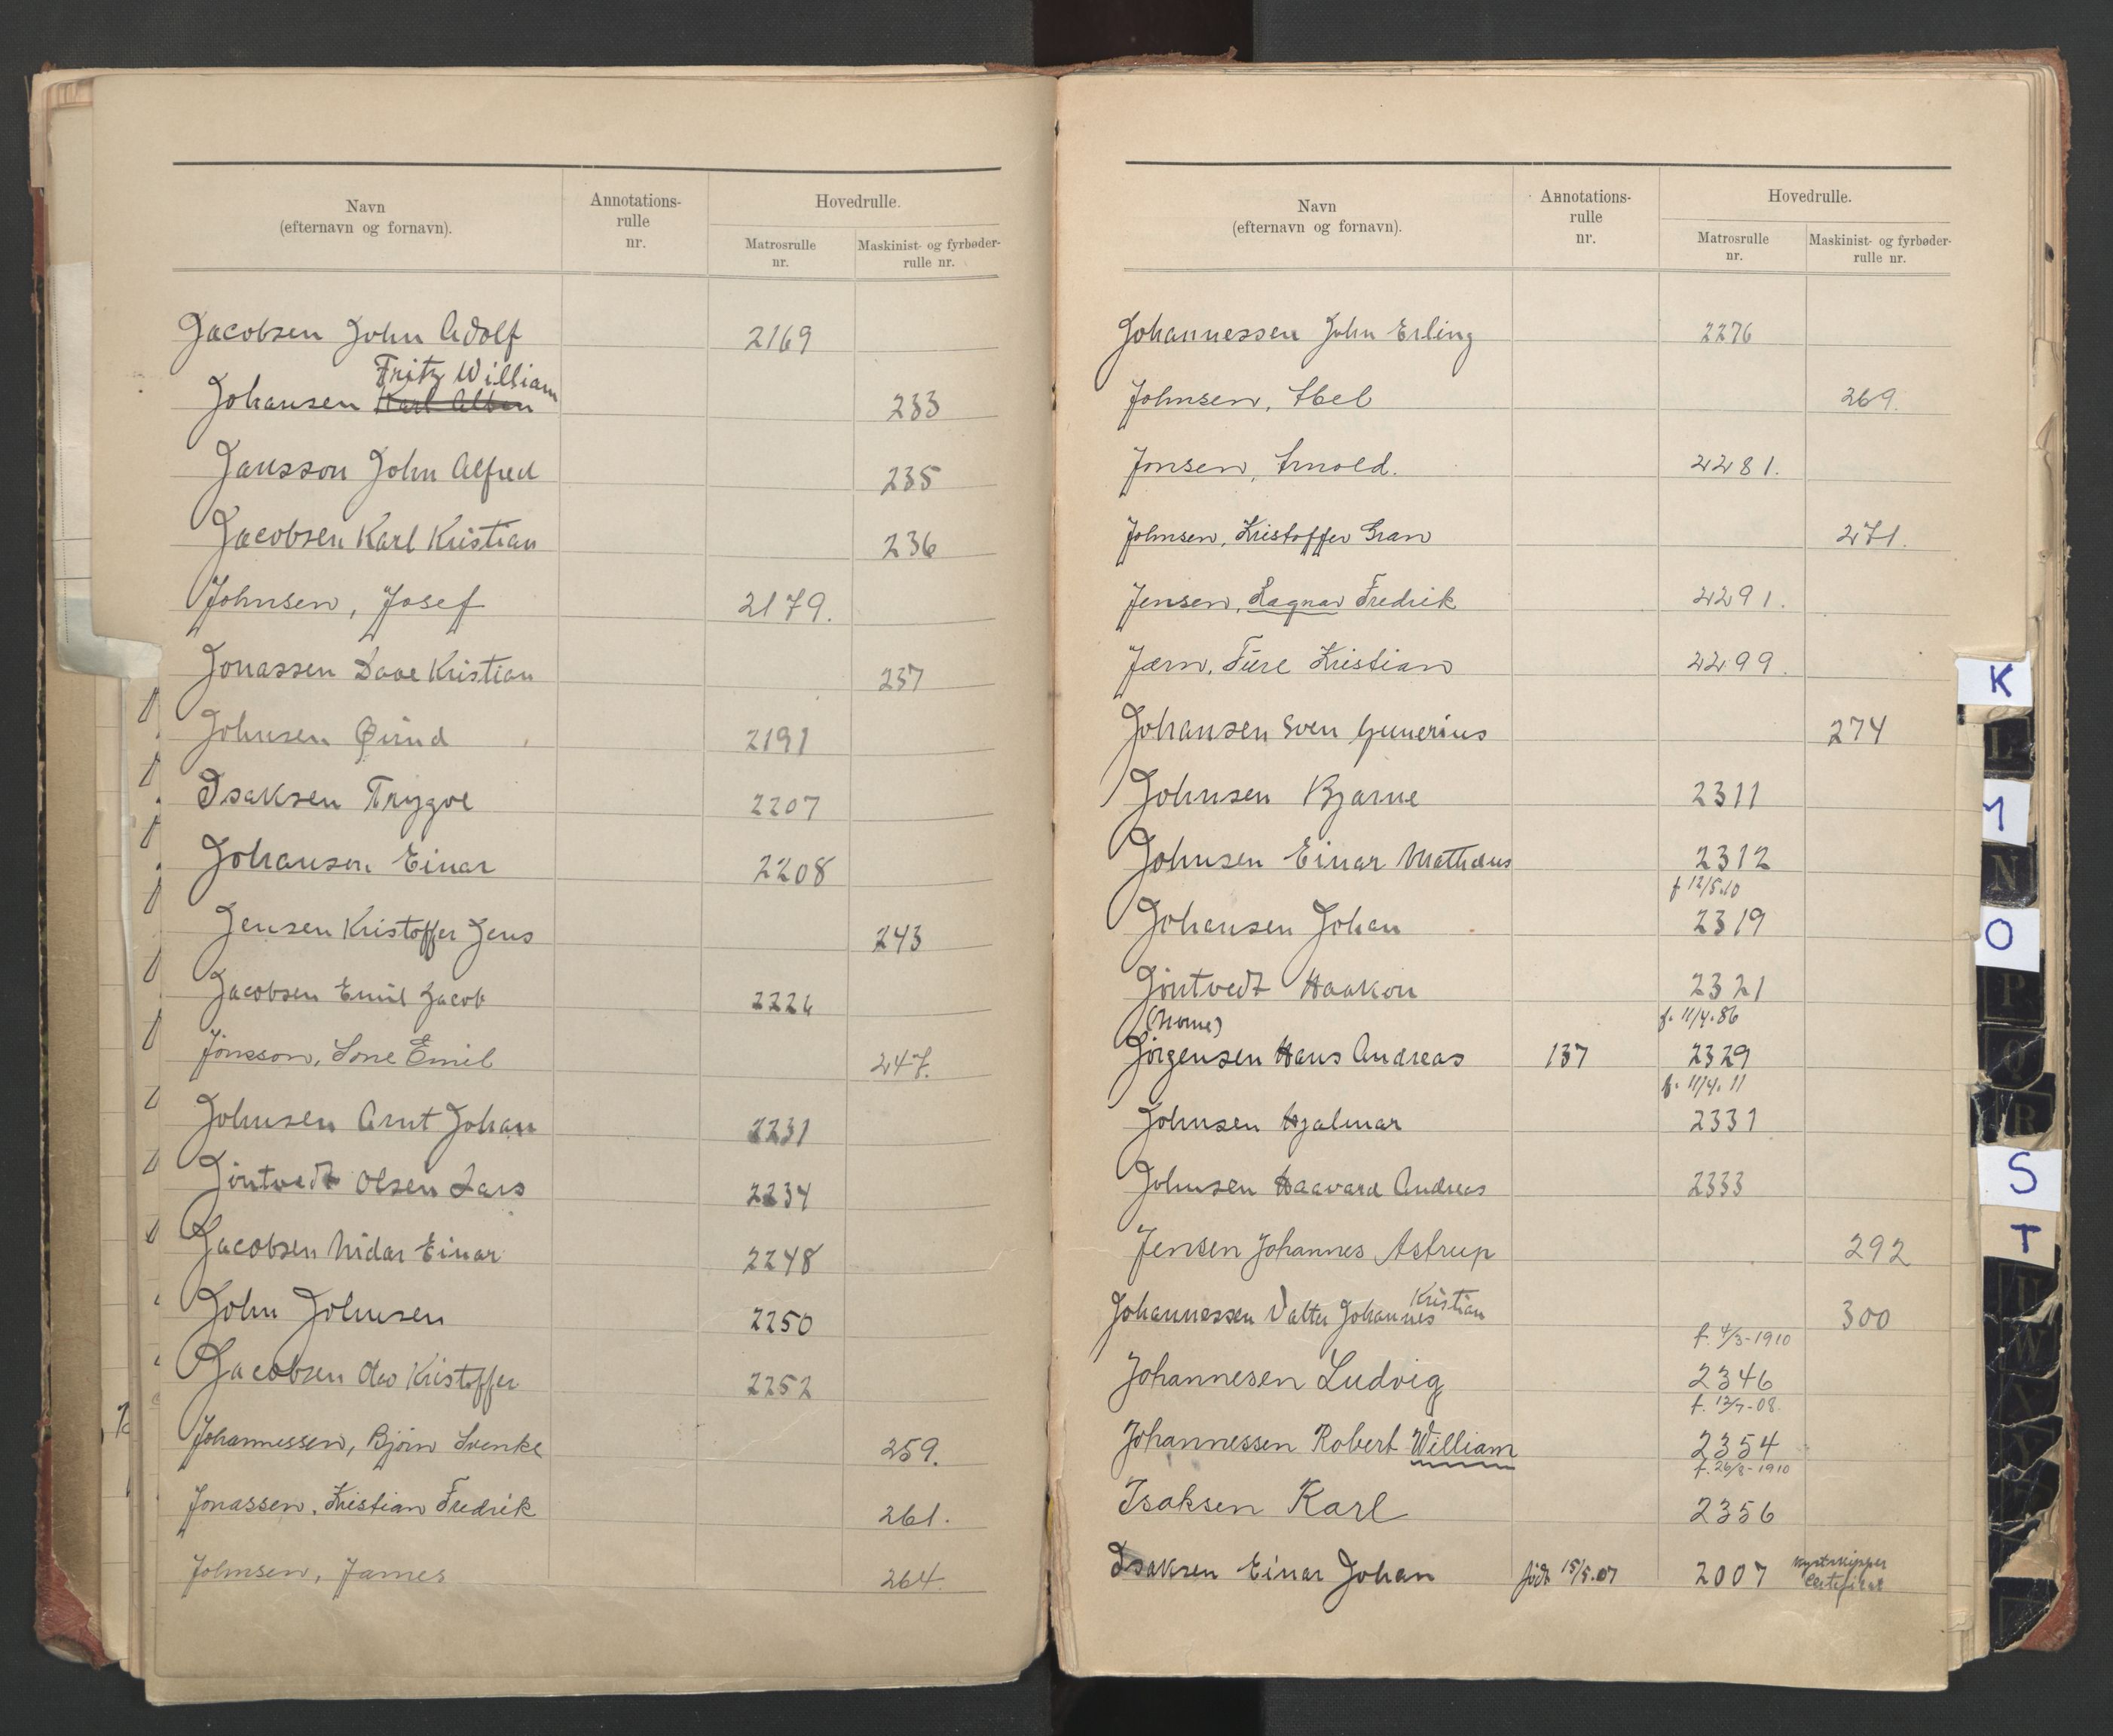 Navn
(efternavn og fornavn).
Annotations-
rulle
nr.
Hovedrulle.
Matrosrulle
nr.
Maskinist- og fyrbøder-
rulle nr.
Jacobsen John Adolf 2169
Fritz William
Johansen Karl 233
Jansson John Alfred 235
Jacobsen Karl Kristian 236
Johnsen, Josef 2179.
Jonassen Kristian 237
Johnsen Øivind 2191
Isaksen Trygve 2207
Johansen Einar 2208
Jensen Kristoffer Jens 243
Jacobsen Emil Jacob 2226
Jönsson, Emil 247.
Johnsen Arnt Johan 2231
Jöntvedt Olsen Lars 2234
Jacobsen Nidar Einar 2248
John Johnsen 2250
Jacobsen Kristoffer 2252
Johannessen, Bjørn 259.
Jonassen, Kristian Fredrik 261.
Johnsen, James 264.
Navn
(efternavn og fornavn).
Annotations-
rulle
nr.
Hovedrulle.
Matrosrulle
nr.
Maskinist- og fyrbøder-
rulle nr.
Johannessen John Erling 2276
Johnsen, Abel 269.
Jonsen, Arnold. 2281.
Johnsen, Kristoffer Gran 271.
Jensen, Ragnar Fredrik 2291.
Jærn, Kristian 2299.
Johansen Sven Gunerius 274
Johnsen Bjarne 2311
Johnsen Einar Mathæus 2312
f 12/5.10
Johansen Johan 2319
Jöntvedt Haakon 2321
f. 11/4.86
Jörgensen Hans Andreas 137 2329
f. 11/4.11
Johnsen Hjalmar 2331
Johnsen Haavard Andreas 2333
Jensen Johannes Astrup 292
Kristian
Johannessen Valter Johannes 300
f. 4/3-1910
Johannesen Ludvig 2346
f. 12/7-08.
Johannessen Robert William 2354
f. 26/8-1910
Isaksen Karl 2356
Isaksen Einar Johan født 15/5.07 2007 kystskipper
certifikat
K
L
M
N
O
P
Q
R
S
T
U
W